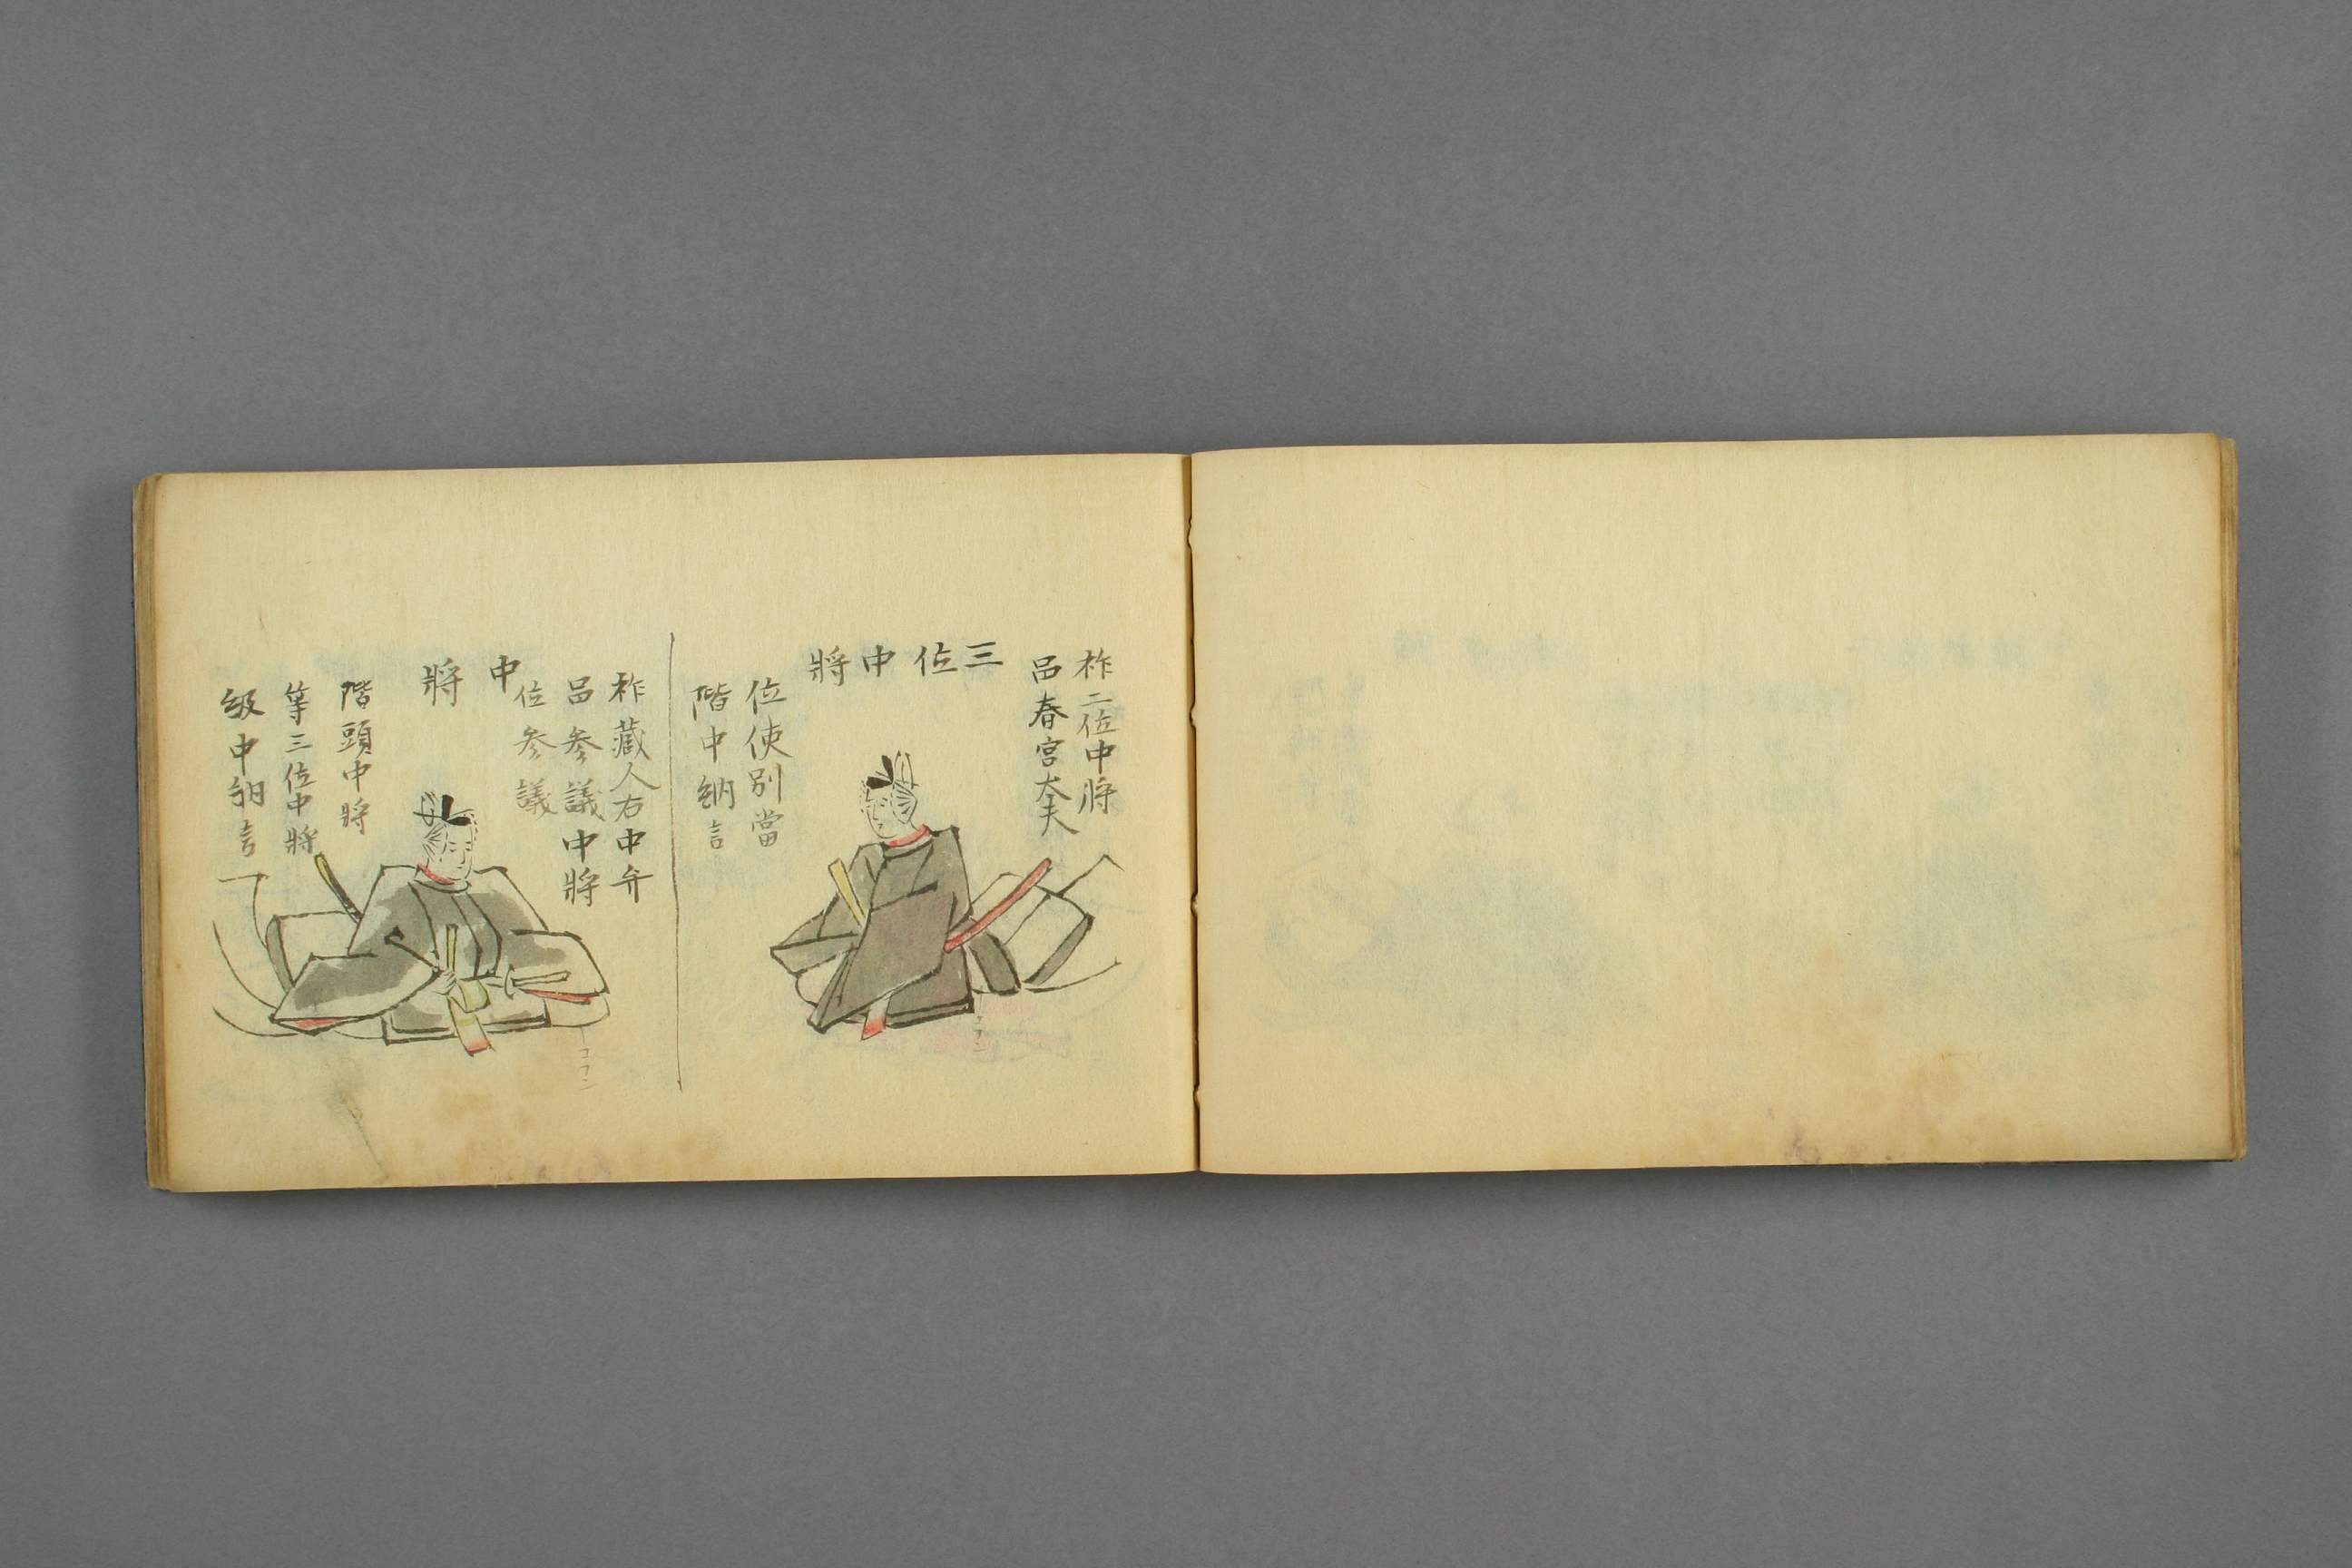 柞二位中將
吕春宮大夫
三位中將
位使別當
階中納言
コフン
柞藏人右中弁
吕参議中將
位参議
中將
階頭中將
等三位中將
級中納言
コフン